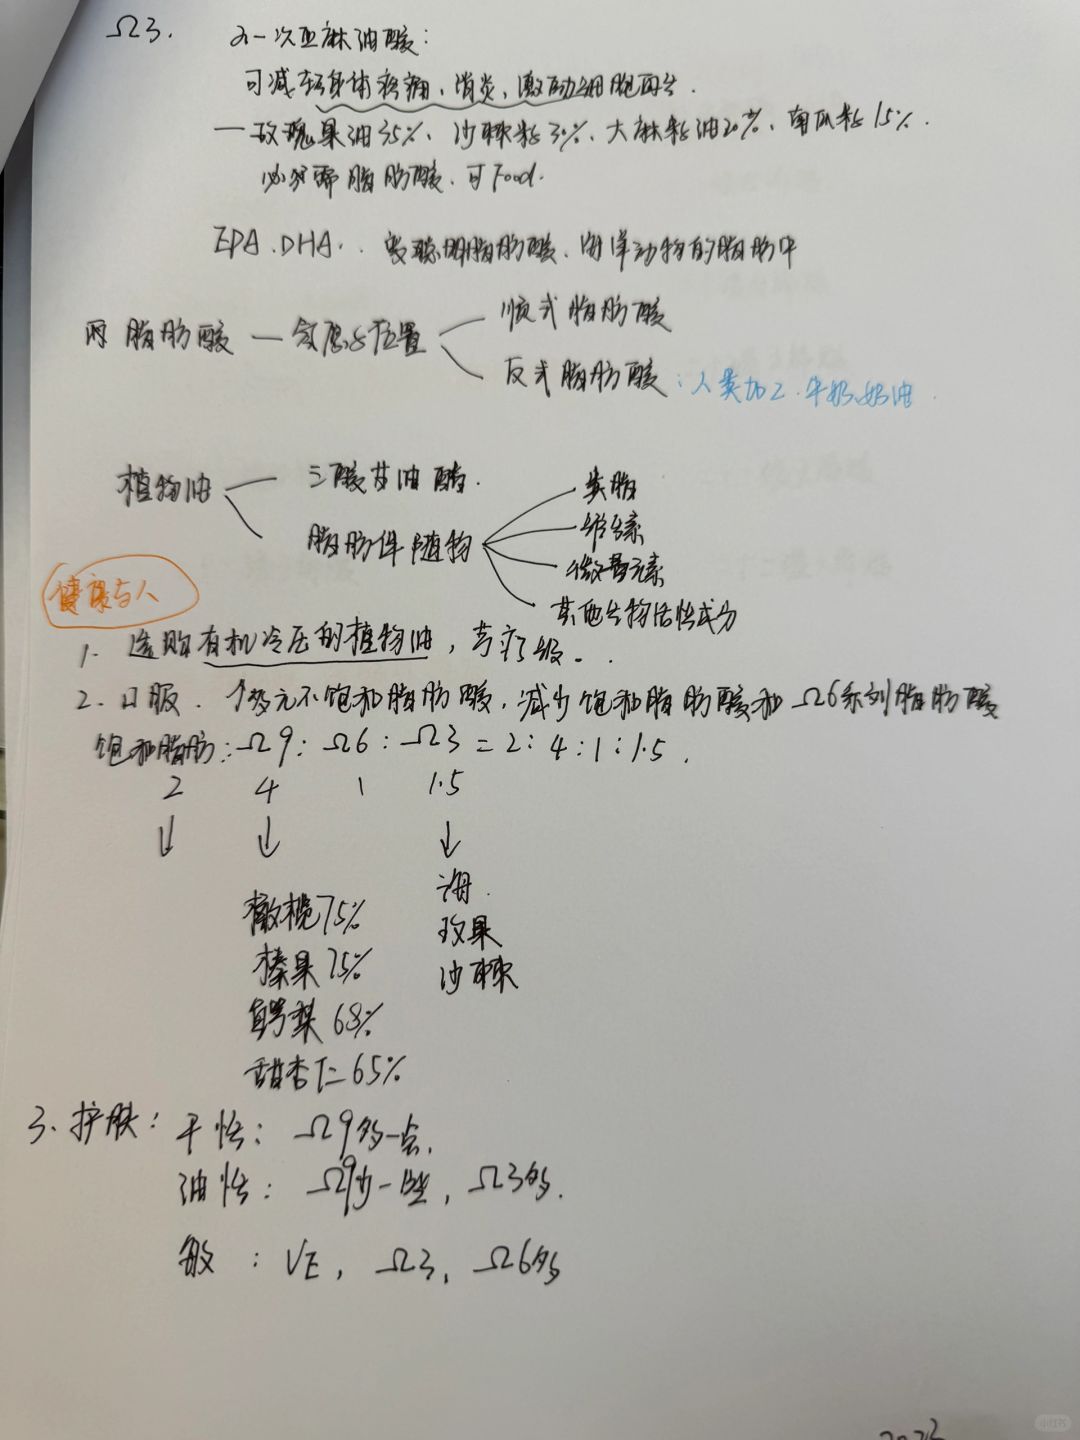 Ω3. α-次亚麻油酸:
可减轻身体疼痛、消炎、激励细胞再生.
一玫瑰果油35%、沙棘籽30%、大麻籽油20%、南瓜籽15%.
必须需脂肪酸、可Food.
EPA.DHA.. 脂肪酸、海洋动物的脂肪中
脂肪酸 — 氢原子位置
顺式脂肪酸
反式脂肪酸:人类加工.牛奶、奶油.
植物油
三酸甘油酯.
脂肪伴随物
类脂
维生素
微量元素
其他生物活性成分
健康与人
1. 选购有机冷压的植物油,芳疗级。.
2. 口服. ↑多元不饱和脂肪酸,减少饱和脂肪酸和Ω6系列脂肪酸
饱和脂肪:Ω9:Ω6:Ω3=2:4:1:1.5.
2 4 1 1.5
↓ ↓ ↓
海.
橄榄75% 玫果
榛果75% 沙棘
68%
甜杏仁65%
3. 护肤: 干性: Ω9多一点.
油性: Ω9少一些,Ω3多.
敏: VE, Ω3, Ω6多
小红书